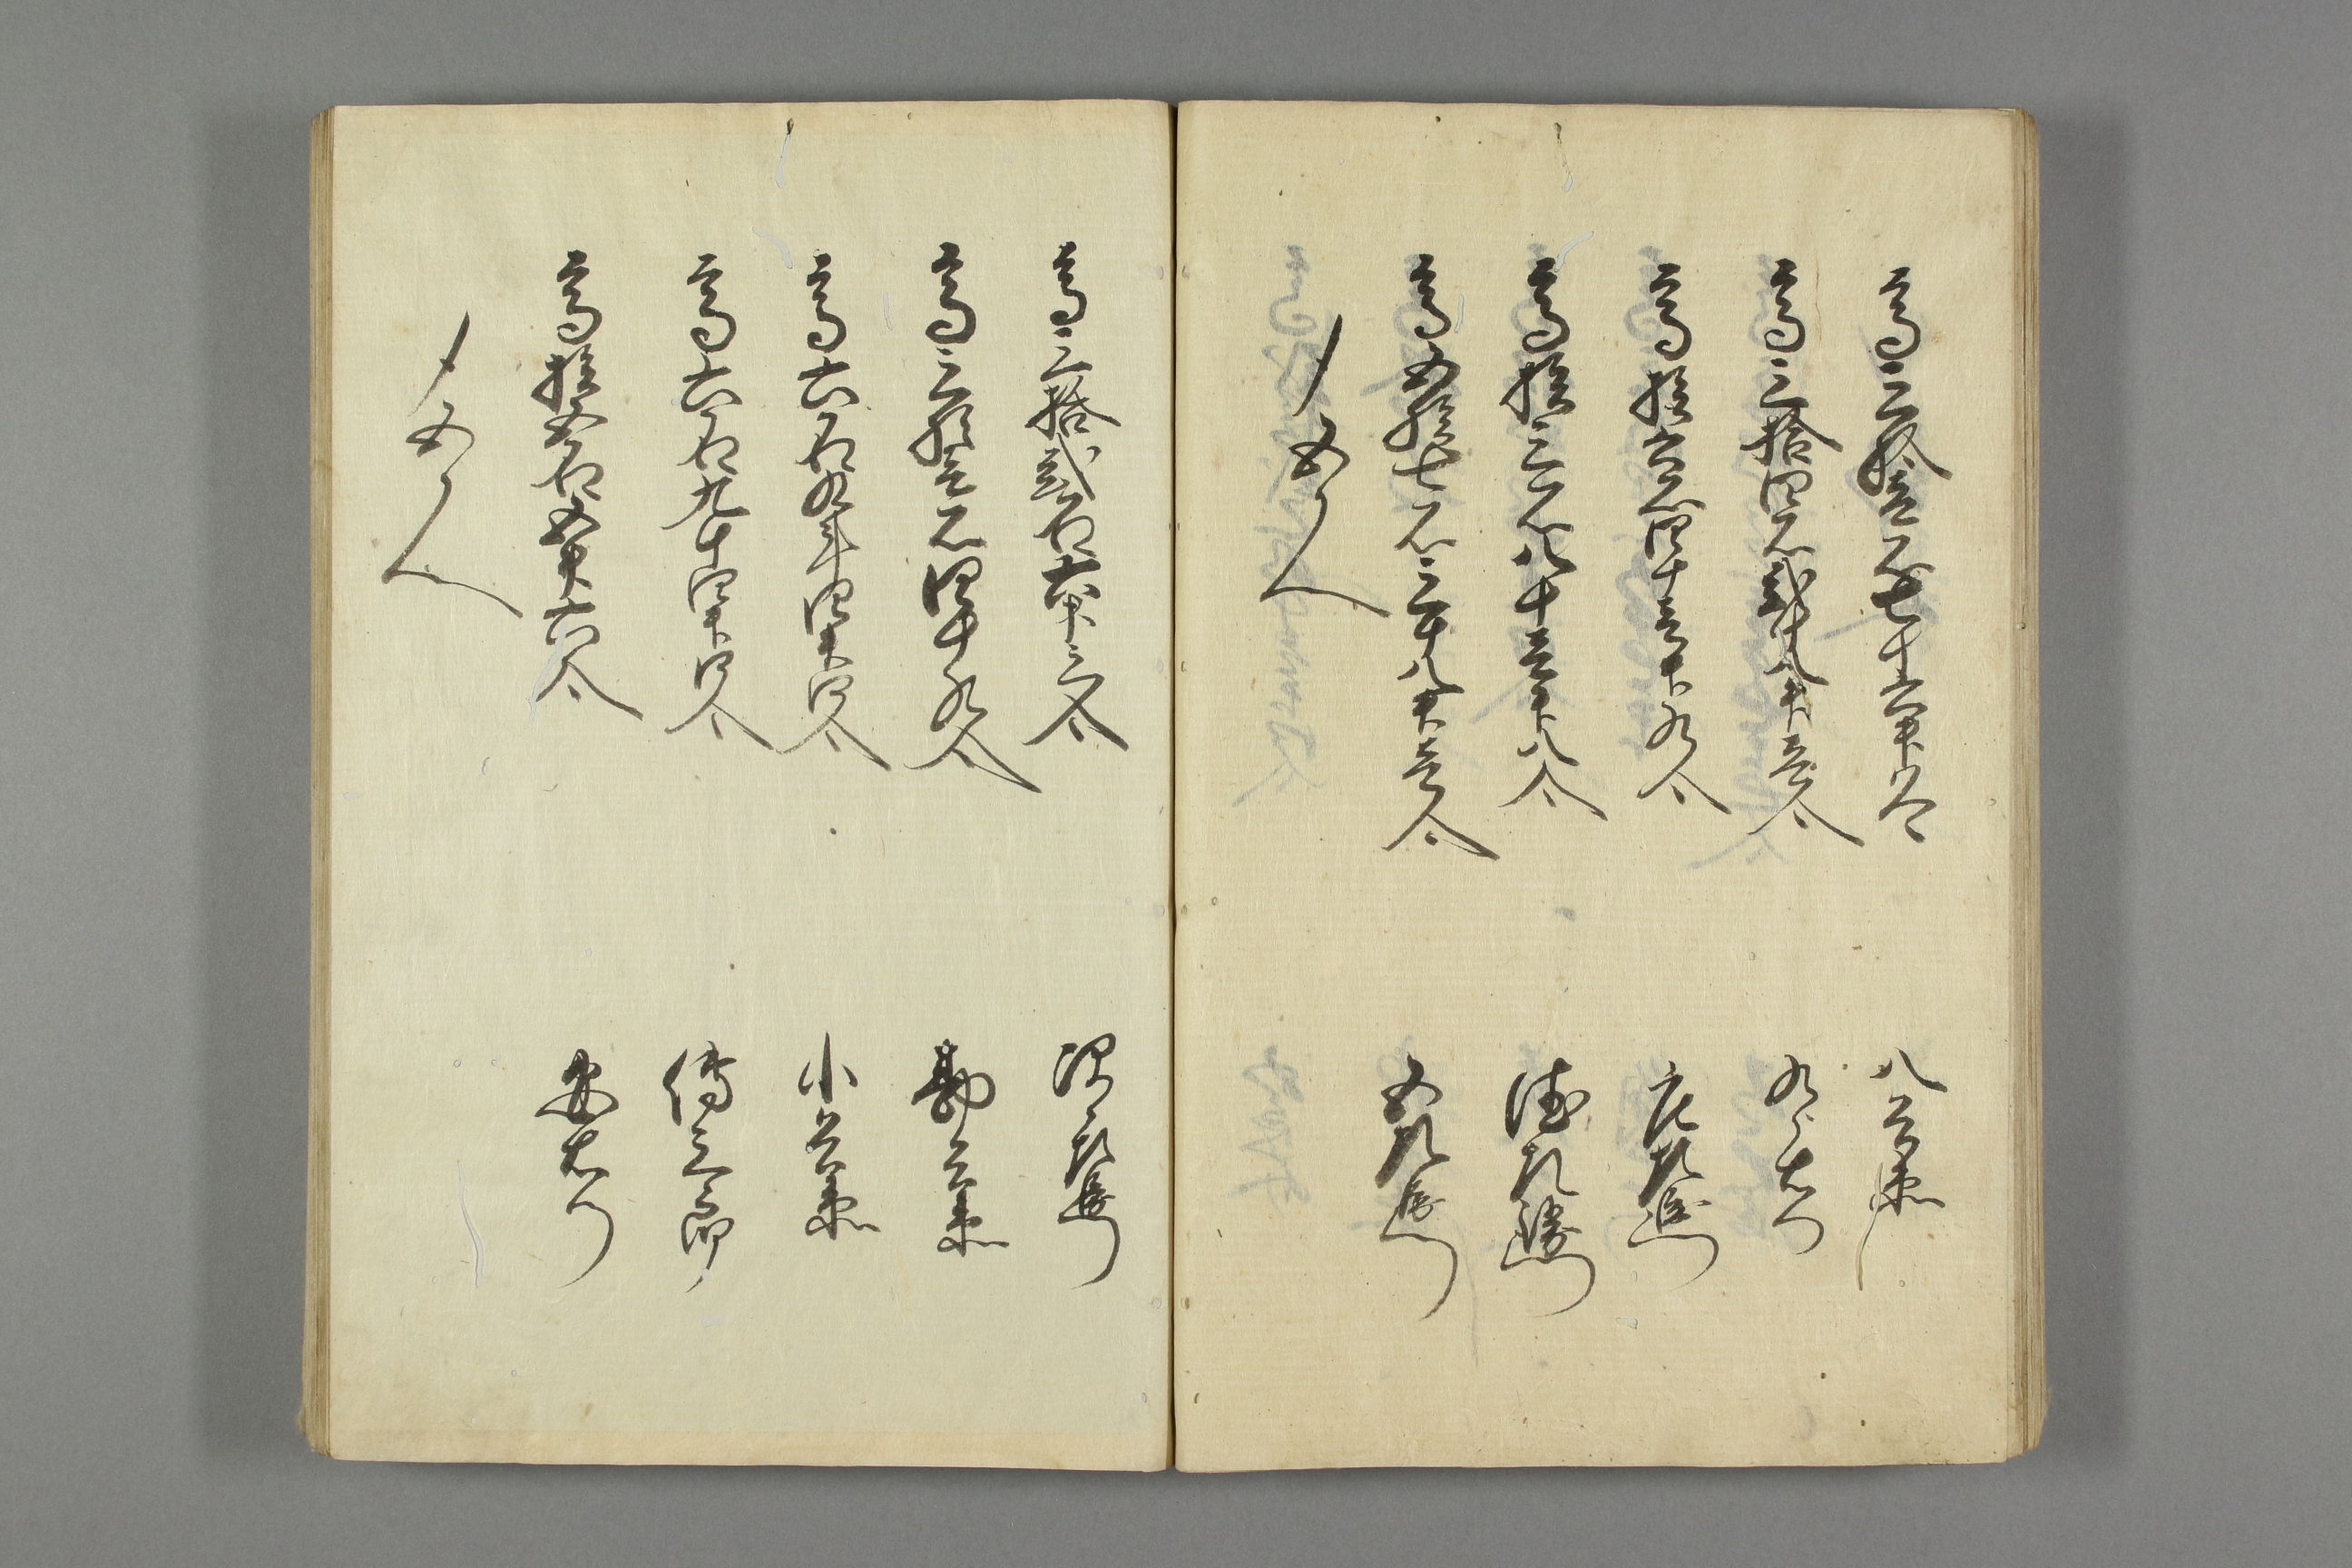 高三拾壱石七斗六升八合
八兵衛
高三拾四石弐斗八升壱合
九右衛門
高拾六石四斗壱升九合
庄左衛門
高拾三石八斗壱升八合
徳左衛門
高五拾七石三斗八升壱合
五左衛門
〆五人
高三拾弐石六升三合
源左衛門
高三拾壱石四斗九合
勘兵衛
高六石九斗四升四合
小兵衛
高六石九斗四升四合
傳三郎
高拾五石五升六合
安右衛門
〆五人